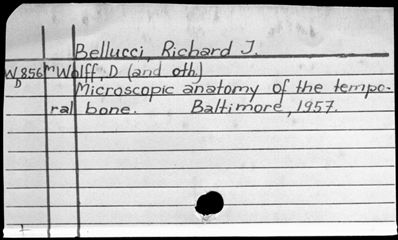 Bellucci, Richard J.
W856m Wolff, D (and oth.)
D Microscopic anatomy of the tempo-
ral bone. Baltimore, 1957.